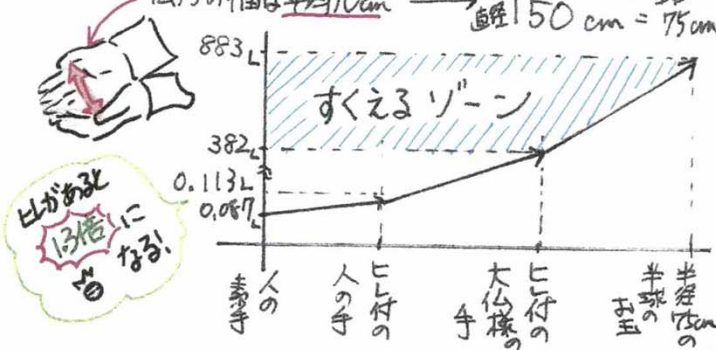 の幅は平均10cm
直径150cm = 75cm
883L
すくえるゾーン
382L
0.113L
0.087L
ヒレがあると
1.3倍に
なる！
人の素手
ヒレ付の人の手
ヒレ付の大仏様の手
半径75cmの半球のお玉